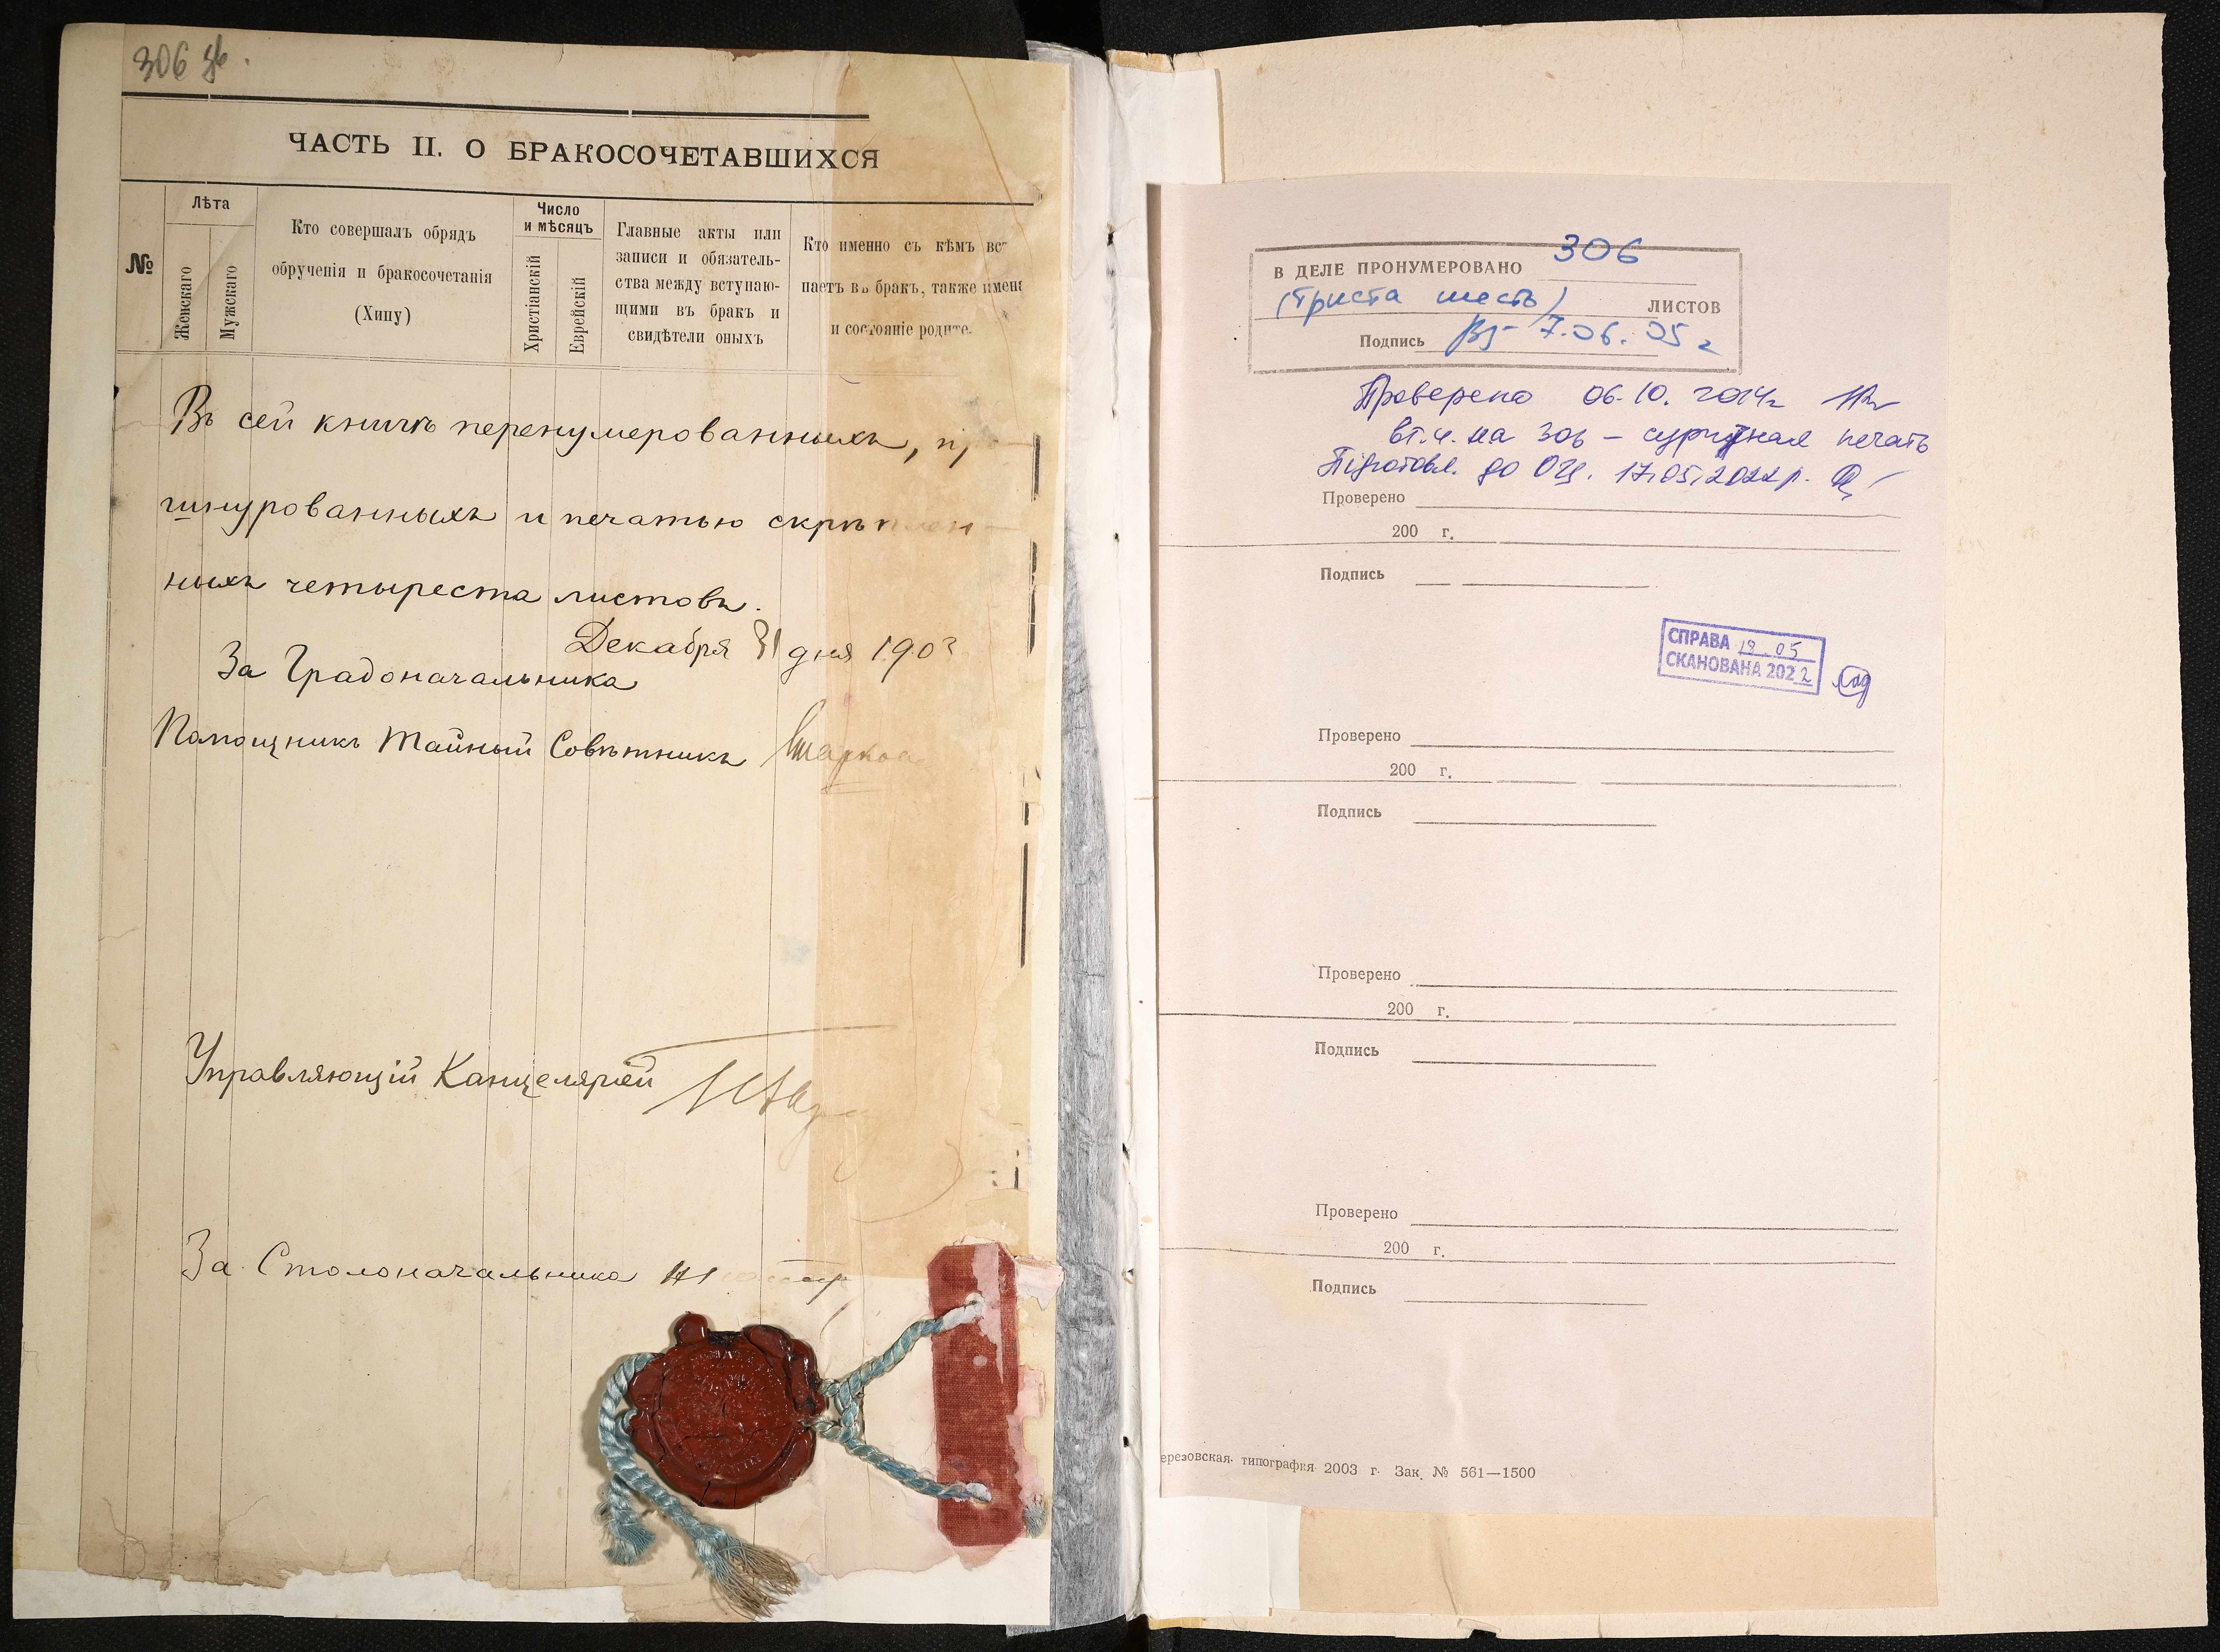 306 зв.
ЧАСТЬ II. О БРАКОСОЧЕТАВШИХСЯ
№
Лѣта
Женскаго
Мужскаго
Кто совершалъ обрядъ
обрученія и бракосочетанія
(Хипу)
Число
и мѣсяцъ
Христіанскій
Еврейскій
Главные акты или
записи и обязатель-
ства между вступаю-
щими въ бракъ и
свидѣтели оныхъ
Кто именно съ кѣмъ вст
паетъ въ бракъ, также имен
и состояніе родите.
Въ сей книгѣ перенумерованныхъ, пр
шнурованныхъ и печатью скрѣплен-
ныхъ четыреста листовъ.
Декабря 31 дня 1903
За Градоначальника
Помощникъ Тайный Совѣтникъ
Управляющій Канцеляріей
За Столоначальника
В ДЕЛЕ ПРОНУМЕРОВАНО 306
(триста шесть) ЛИСТОВ
Подпись 7.06.05 г
Проверено 06.10.2014г
вт.ч. на 306 – сургучная печать
Підготовл. до ОЦ. 17.05.2022р.
Проверено
200 г.
Подпись
СПРАВА 19.05
СКАНОВАНА 2022
Проверено
200 г.
Подпись
Проверено
200 г.
Подпись
Проверено
200 г.
Подпись
ерезовская типография 2003 г. Зак. № 561—1500